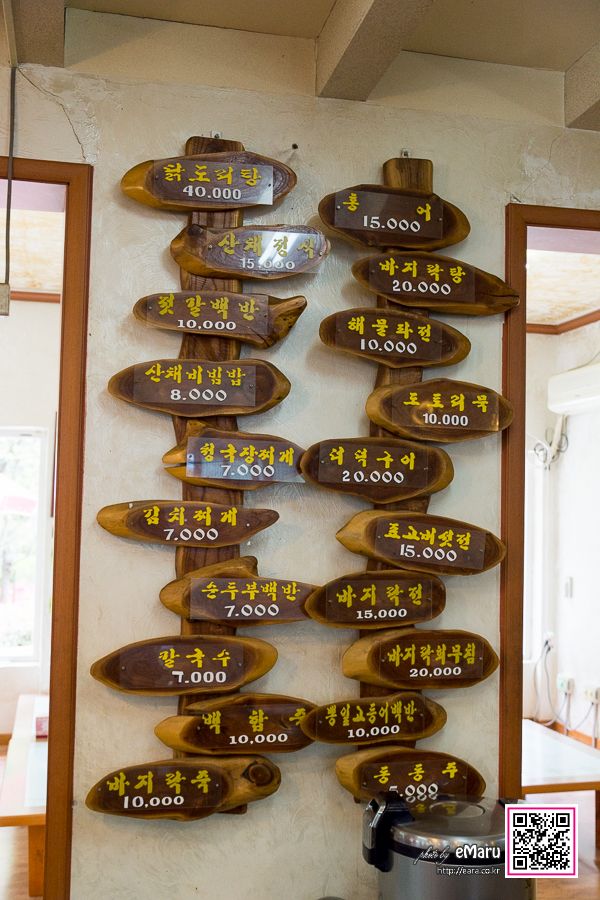 닭도리탕
40.000
산채정식
15.000
젓갈백반
10,000
산채비빔밥
8.000
청국장찌개
7.000
김치찌개
7.000
순두부백반
7.000
칼국수
7.000
백합죽
10,000
바지락죽
10,000
홍어
15.000
바지락탕
20.000
해물파전
10.000
도토리묵
10.000
더덕구이
20.000
표고버섯전
15.000
바지락전
15,000
바지락회무침
20,000
뽕잎고등어백반
10,000
동동주
5.000
photo by eMaru
http://eara.co.kr